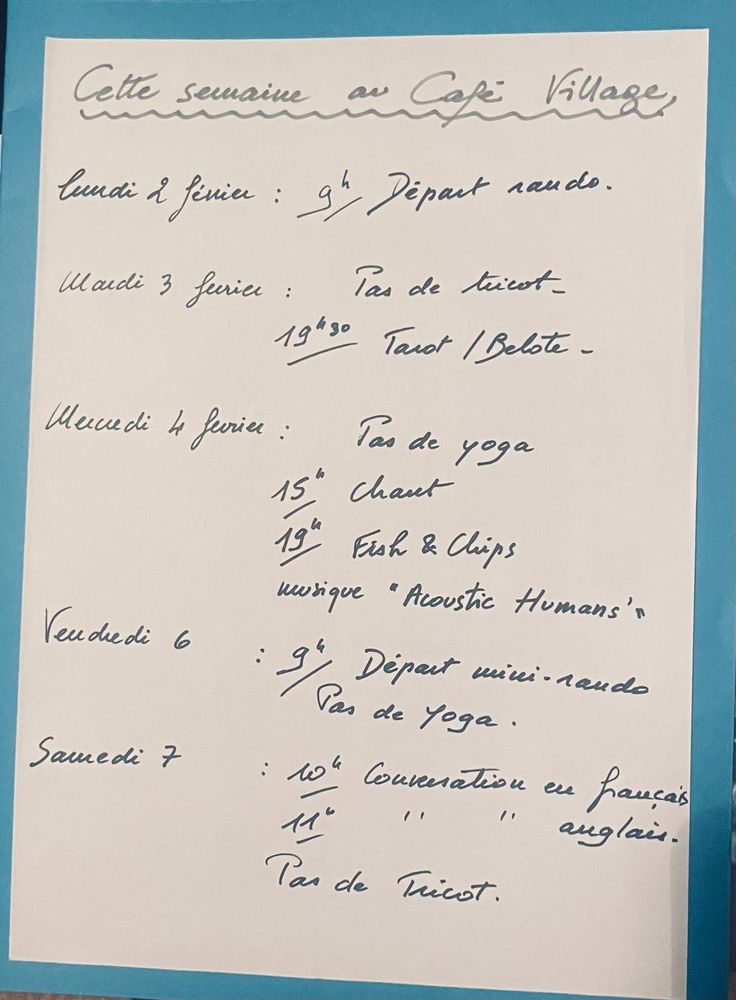 Cette semaine au Café Village,
lundi 2 février : 9h Départ rando.
Mardi 3 fevrier : Pas de tricot -
19h30 Tarot / Belote -
Mercredi 4 fevrier : Pas de yoga
15h Chant
19h Fish & Chips
musique "Acoustic Humans"
Vendredi 6 : 9h Départ mini-rando
Pas de Yoga.
Samedi 7 : 10h Conversation en français
11h " " anglais.
Pas de Tricot.